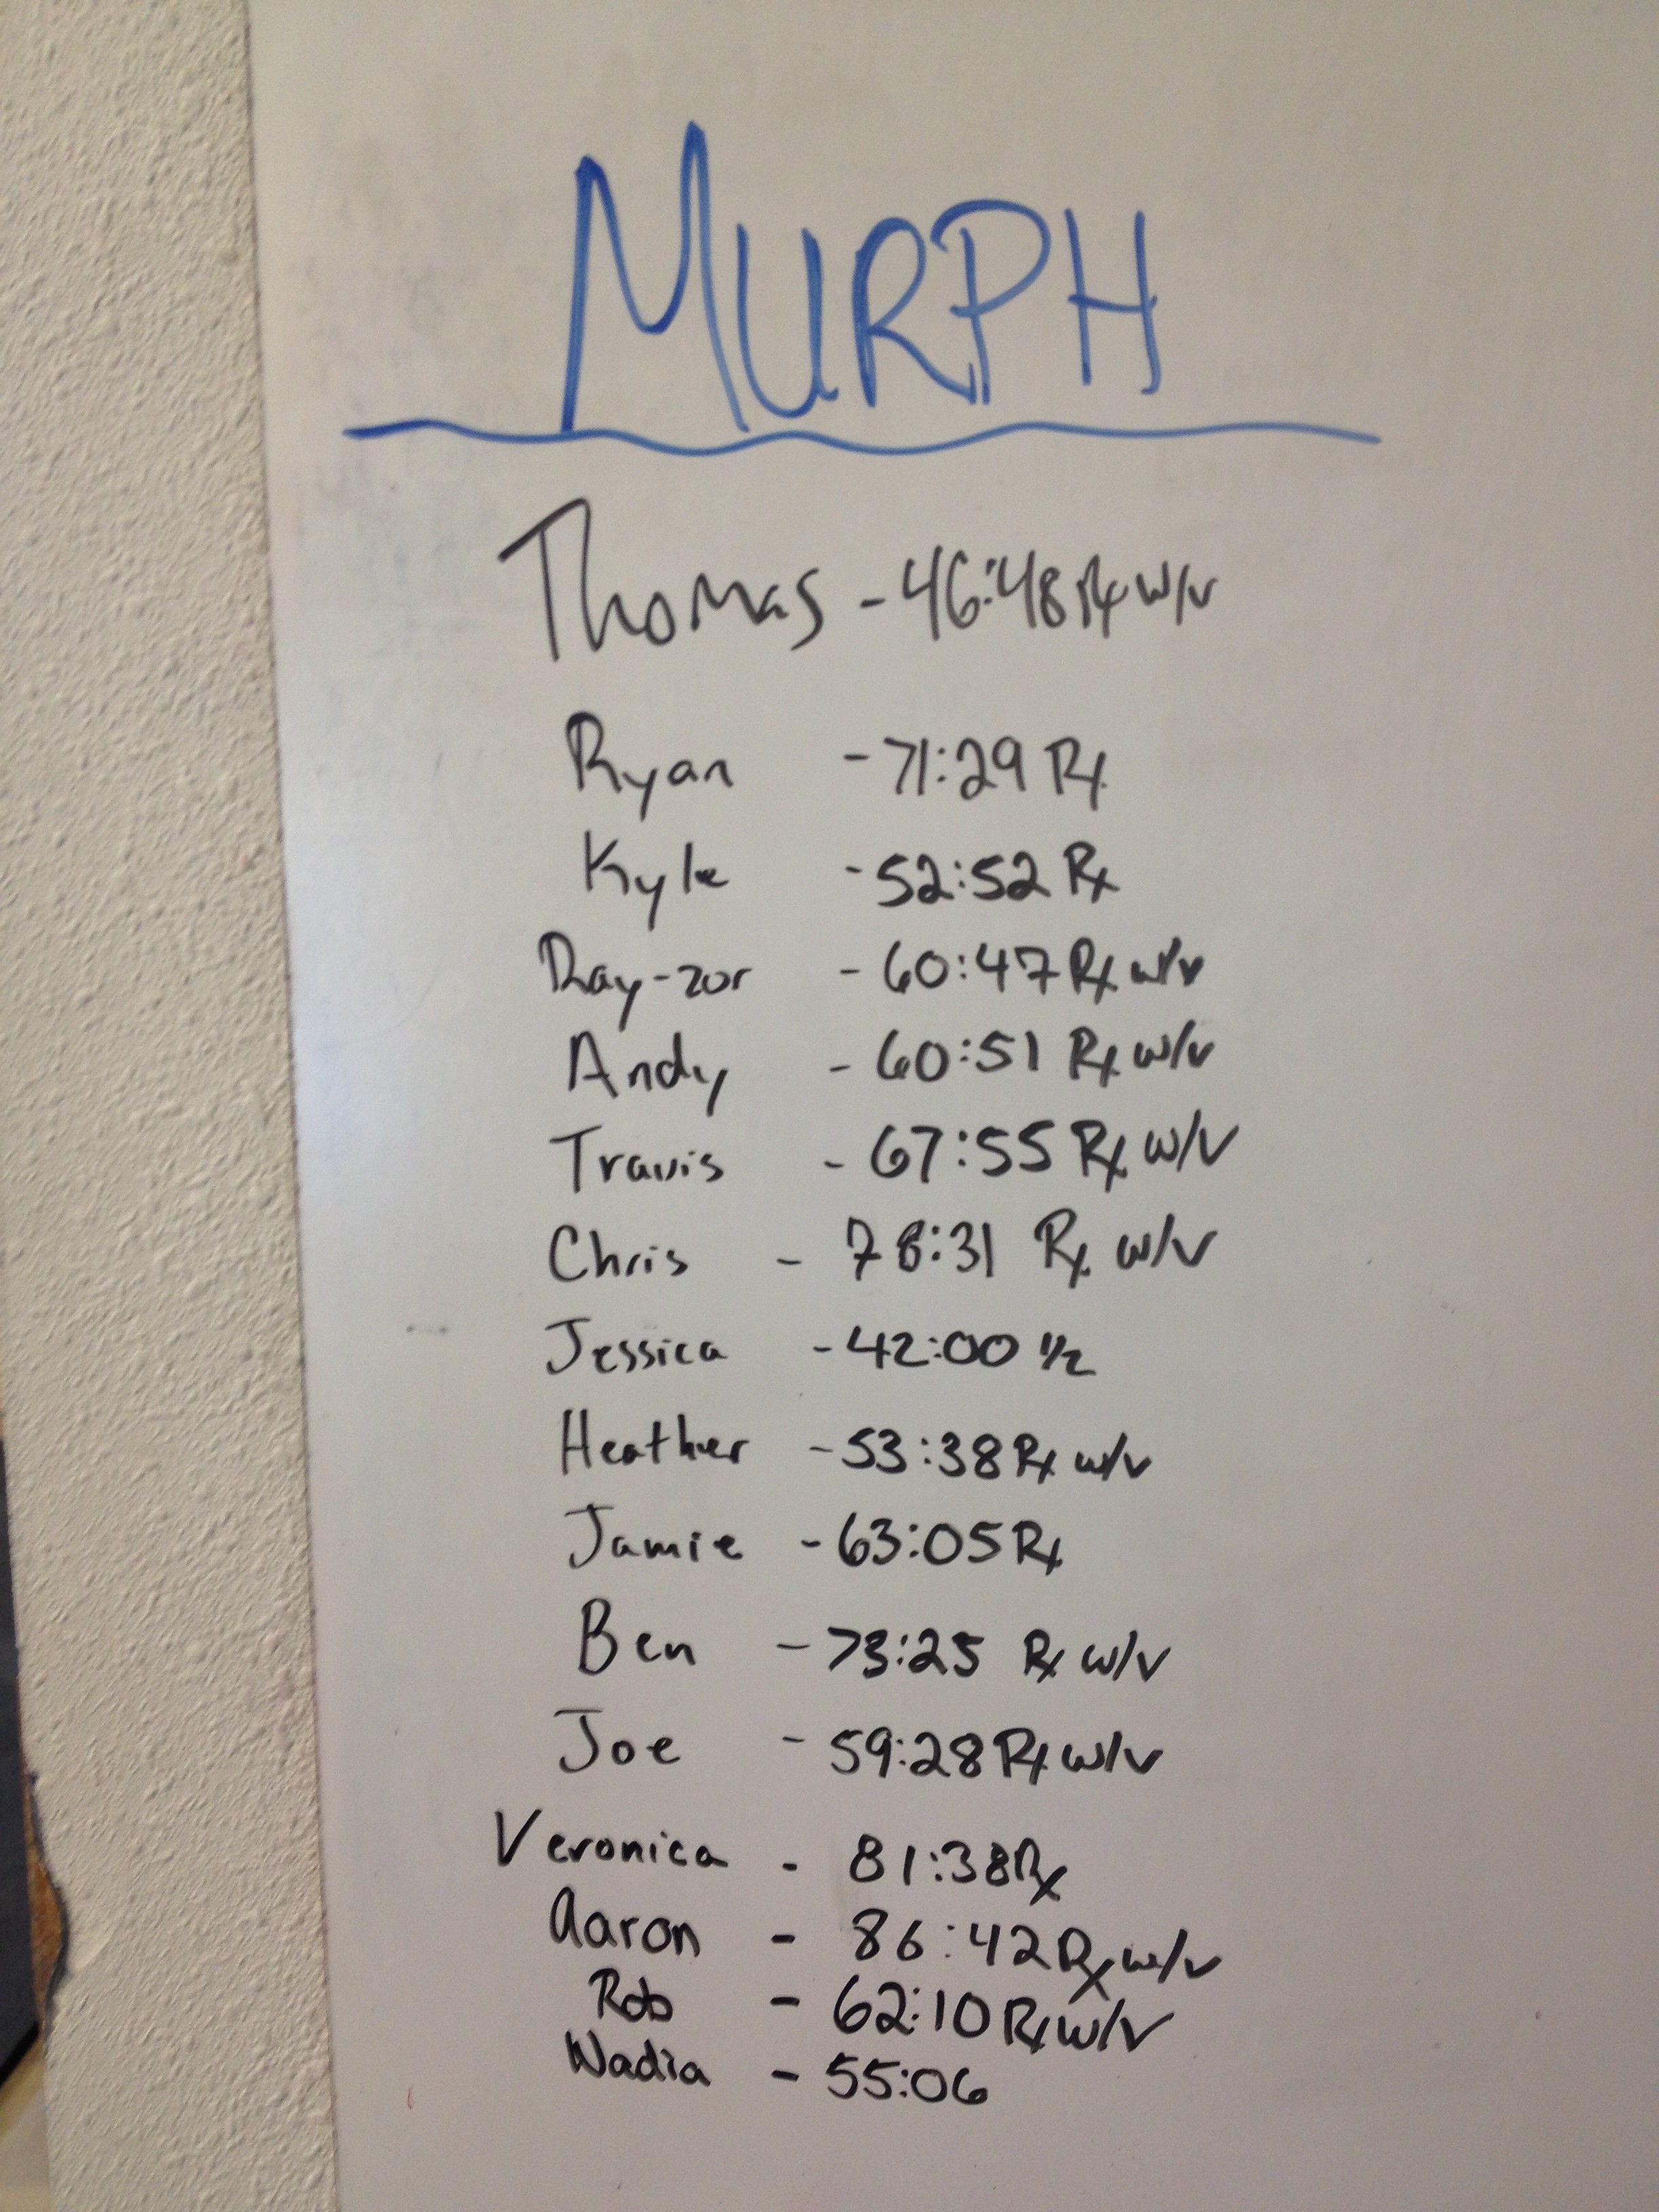 MURPH
Thomas - 46:48 Rx w/v
Ryan - 71:29 Rx
Kyle - 52:52 Rx
Ray-zor - 60:47 Rx w/v
Andy - 60:51 Rx w/v
Travis - 67:55 Rx w/v
Chris - 78:31 Rx w/v
Jessica - 42:00 1/2
Heather - 53:38 Rx w/v
Jamie - 63:05 Rx
Ben - 73:25 Rx w/v
Joe - 59:28 Rx w/v
Veronica - 81:38 Rx
Aaron - 86:42 Rx w/v
Rob - 62:10 Rx w/v
Nadia - 55:06